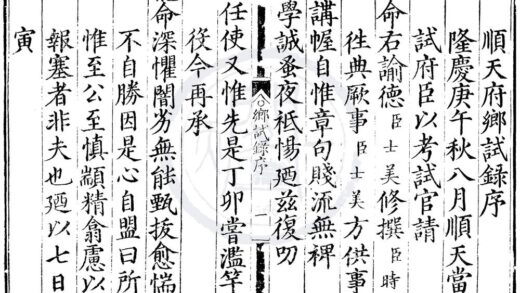 順天府鄉試錄序
隆慶庚午秋八月順天當
試府臣以考試官請
命右諭德臣士美修撰臣時
徃典厥事臣士美方供事
講幄自惟章句賤流無裨
學誠蚤夜祗惕廼茲復叨
鄉試錄序
一
任使又惟先是丁卯嘗濫竽
役今再承
命深懼闇劣無能甄拔愈惴
不自勝因是心自盟曰所
惟至公至慎顓精翕慮以
報塞者非夫也廼以七日
寅